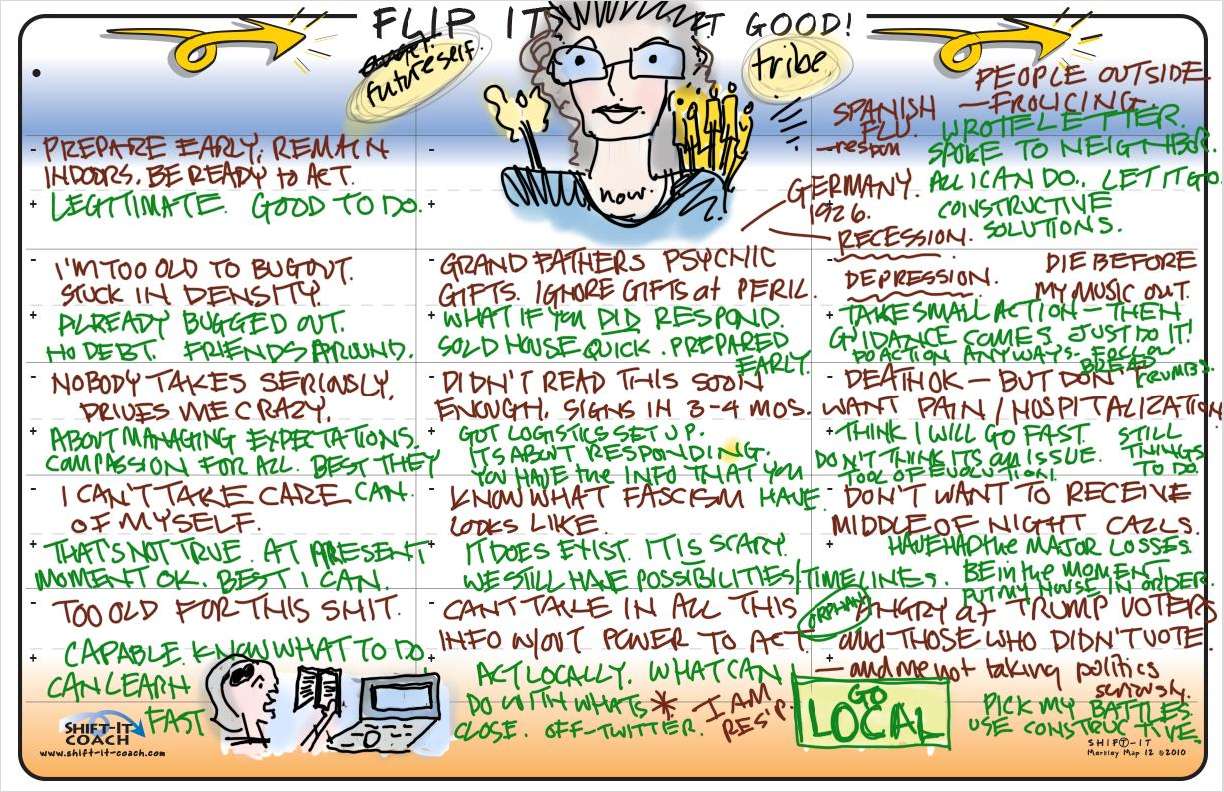 FLIP IT
IT GOOD!
future self.
tribe
now.
PREPARE EARLY. REMAIN
INDOORS. BE READY to ACT.
LEGITIMATE. GOOD TO DO.
I'M TOO OLD TO BUGOUT.
STUCK IN DENSITY.
ALREADY BUGGED OUT.
NO DEBT. FRIENDS AROUND.
NOBODY TAKES SERIOUSLY,
DRIVES ME CRAZY.
ABOUT MANAGING EXPECTATIONS.
COMPASSION FOR ALL. BEST THEY
CAN.
I CAN'T TAKE CARE
OF MYSELF.
THAT'S NOT TRUE. AT PRESENT
MOMENT OK. BEST I CAN.
TOO OLD FOR THIS SHIT.
CAPABLE. KNOW WHAT TO DO.
CAN LEARN
FAST
SHIFT-IT
COACH
www.shift-it-coach.com
GRANDFATHERS PSYCHIC
GIFTS. IGNORE GIFTS at PERIL.
WHAT IF YOU DID RESPOND.
SOLD HOUSE QUICK. PREPARED
EARLY.
DIDN'T READ THIS SOON
ENOUGH. SIGNS IN 3-4 MOS.
GOT LOGISTICS SET UP.
ITS ABOUT RESPONDING.
YOU HAVE the INFO THAT YOU
HAVE.
KNOW WHAT FASCISM
LOOKS LIKE.
IT DOES EXIST. IT IS SCARY.
WE STILL HAVE POSSIBILITIES/TIMELINES.
CAN'T TAKE IN ALL THIS
INFO W/OUT POWER TO ACT.
ACT LOCALLY. WHAT CAN I
DO WITH WHATS
CLOSE. OFF-TWITTER.
* I AM
RES'P.
PEOPLE OUTSIDE
—FROLICING.
SPANISH
FLU.
WROTE LETTER.
SPOKE TO NEIGHBOR.
ALL I CAN DO. LET IT GO.
CONSTRUCTIVE
SOLUTIONS.
GERMANY.
1926.
RECESSION.
DEPRESSION.
DIE BEFORE
MY MUSIC OUT.
TAKE SMALL ACTION—THEN
GUIDANCE COMES. JUST DO IT!
DO ACTION ANYWAYS. FOLLOW
BREAD
CRUMBS.
DEATH OK — BUT DON'T
WANT PAIN/HOSPITALIZATION
THINK I WILL GO FAST.
DON'T THINK ITS an ISSUE.
TOOL OF EVOLUTION!
STILL
THINGS
TO DO.
DON'T WANT TO RECEIVE
MIDDLE OF NIGHT CALLS.
HAVE HAD the MAJOR LOSSES
BE in the MOMENT
PUT MY HOUSE IN ORDER.
ORPHAN
ANGRY at TRUMP VOTERS
and THOSE WHO DIDN'T VOTE.
— and me not taking politics
seriously.
GO
LOCAL
PICK MY BATTLES.
USE CONSTRUCTIVE.
SHIFT-IT
Markley Map 12 ©2010